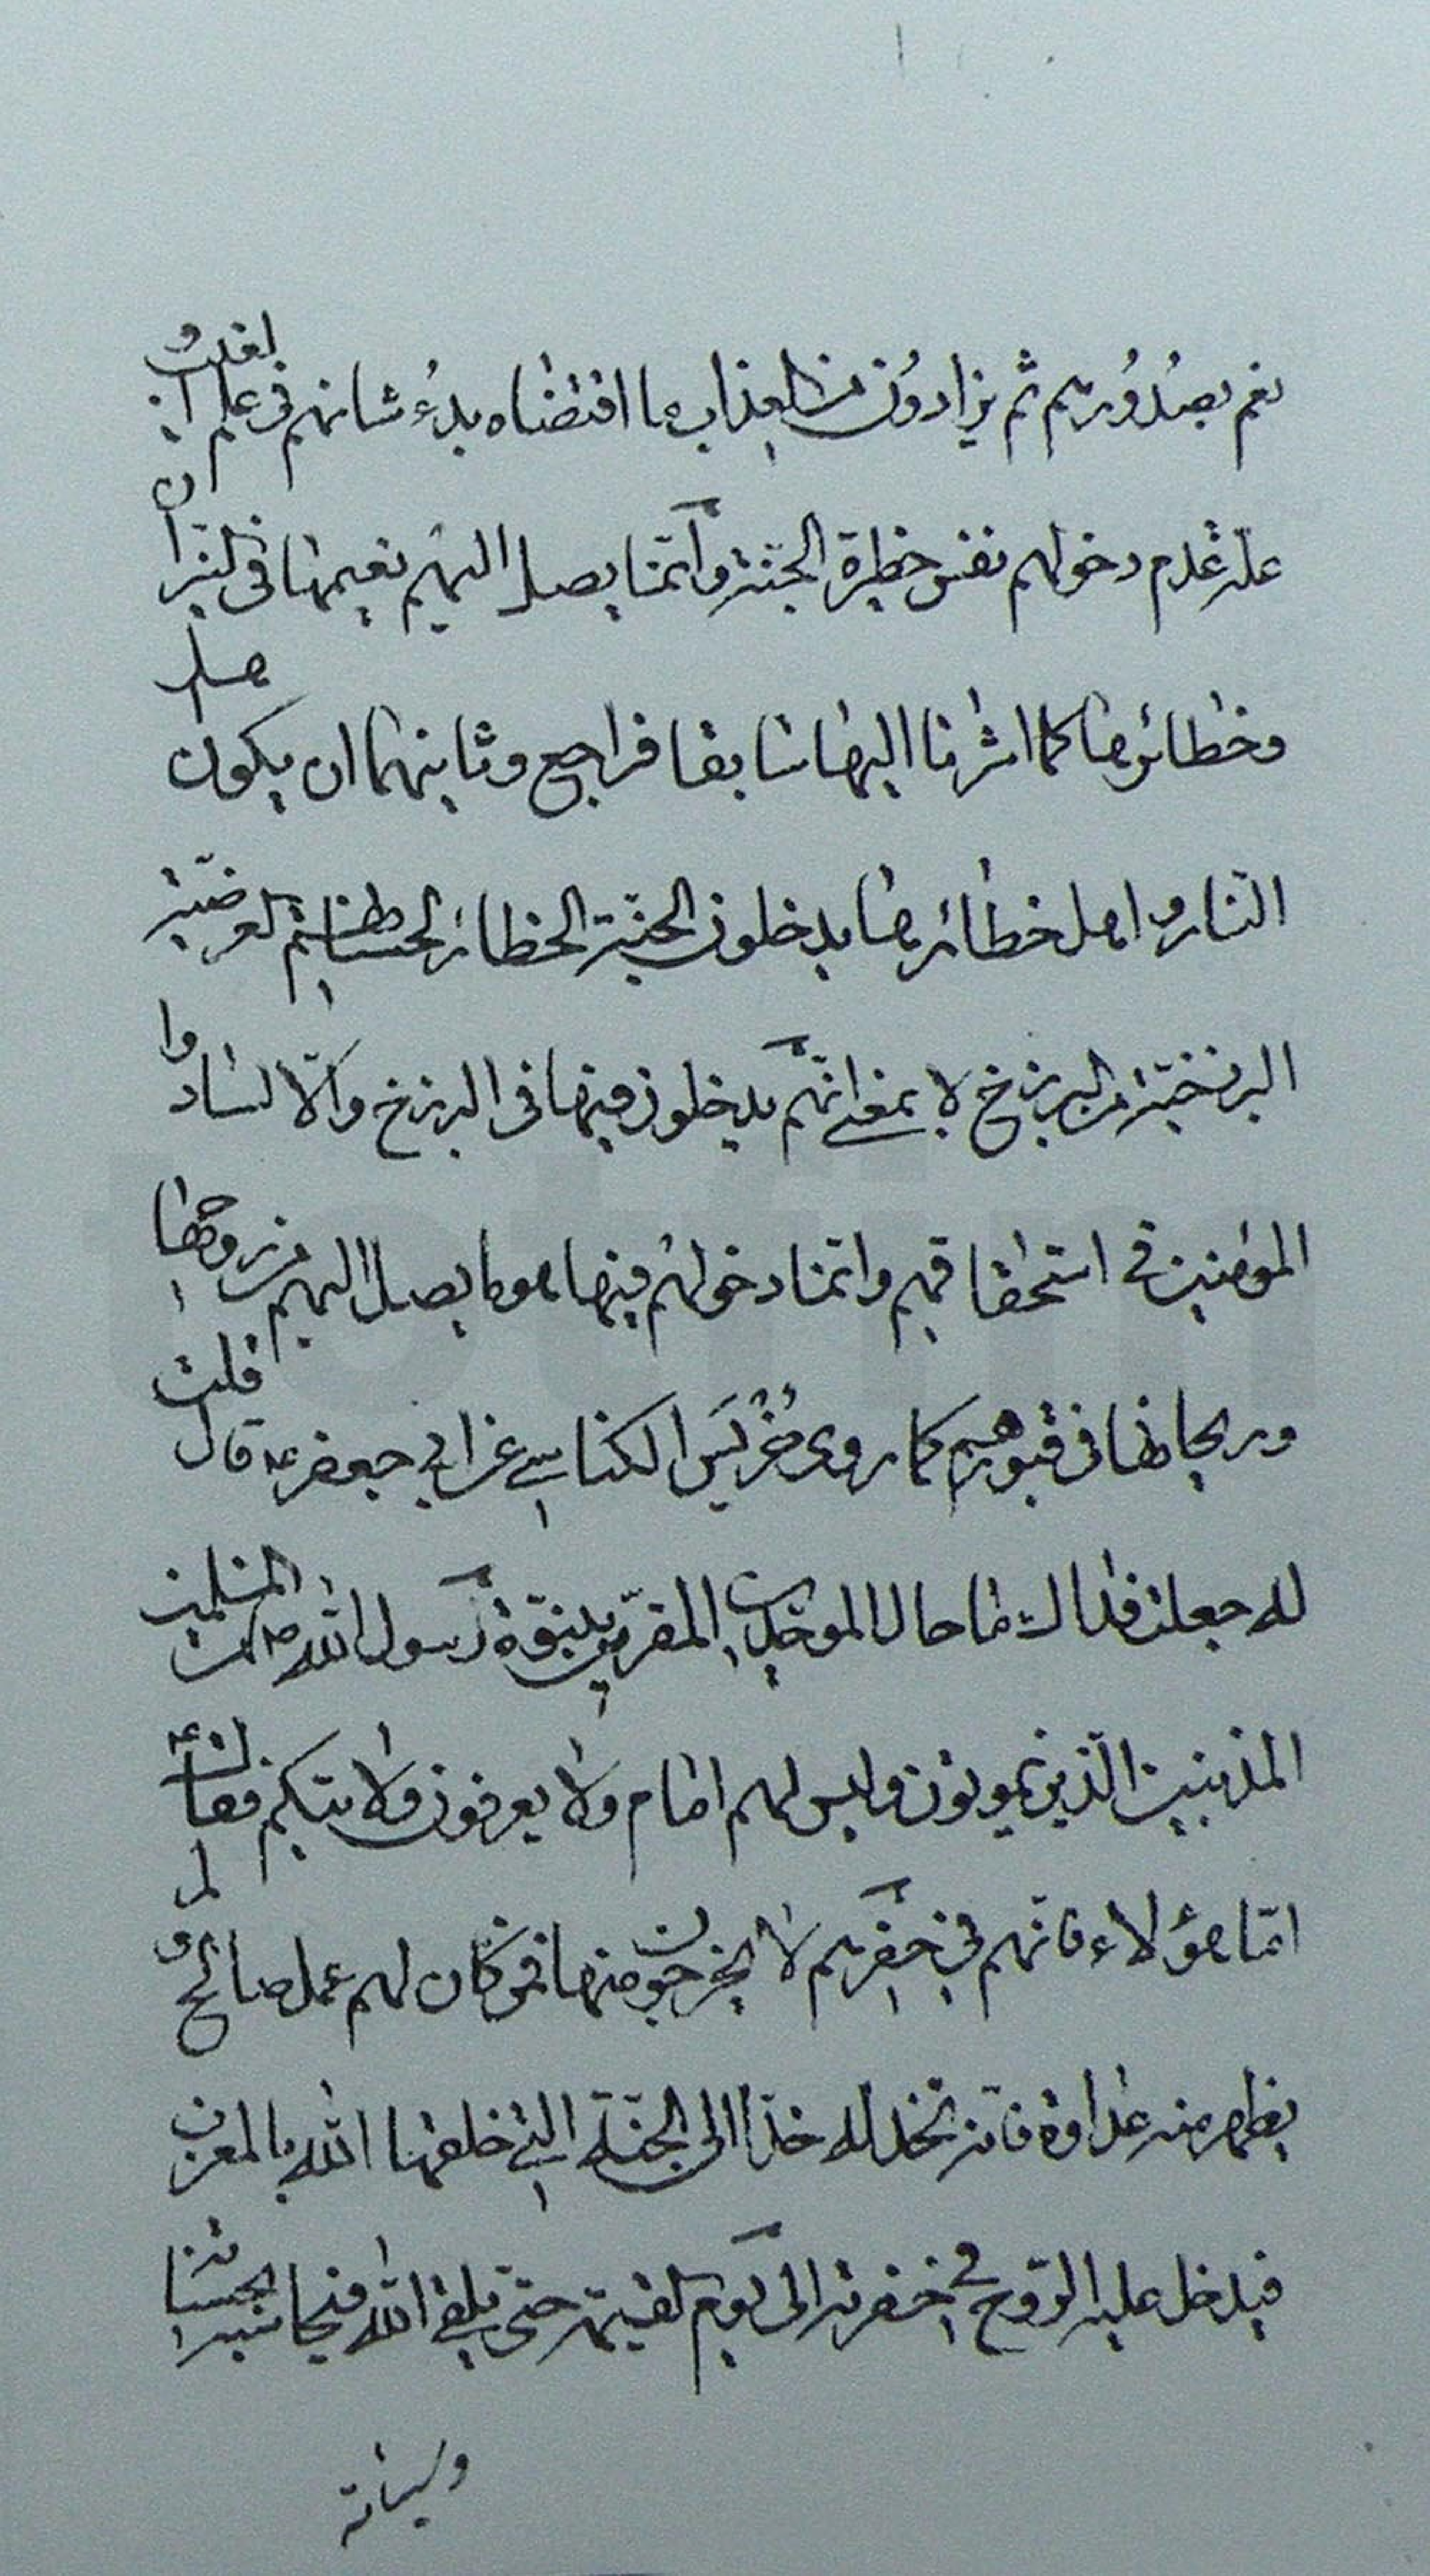 نعم بصدورهم ثم يزادون من العذاب ما اقتضاه بدء شانهم فى علم
علة عدم دخولهم نفس حظيرة الجنة وانما يصل اليهم نعيمها فى النيران
وحظائرها كما اشرنا اليها سابقا فراجع وثانيهما ان يكون اهل
النار واهل حظائرها يدخلون الجنة الحظائر لحسناتهم
البرزخية فى البرزخ لا بمعنى انهم يدخلون فيها فى البرزخ والا لساووا
المؤمنين فى استحقاقهم وانما دخولهم فيها هو ما يصل اليهم من روحها
وريحانها فى قبورهم كما روى ضُرَيس الكناسى عن ابى جعفر ع قال قلت
له جعلت فداك ما حال الموحدين المقرين بنبوة رسول الله ص من المسلمين
المذنبين الذين يموتون وليس لهم امام ولا يعرفون ولايتكم فقال ع
اما هؤلاء فانهم فى حفرهم لا يخرجون منها فمن كان لهم عمل صالح و لم
يظهر منه عداوة فانه يخد له خدا الى الجنة التى خلقها الله بالمغرب
فيدخل عليه الروح فى حفرته الى يوم القيمة حتى يلقى الله فيحاسبه بحسناته
وسيئاته